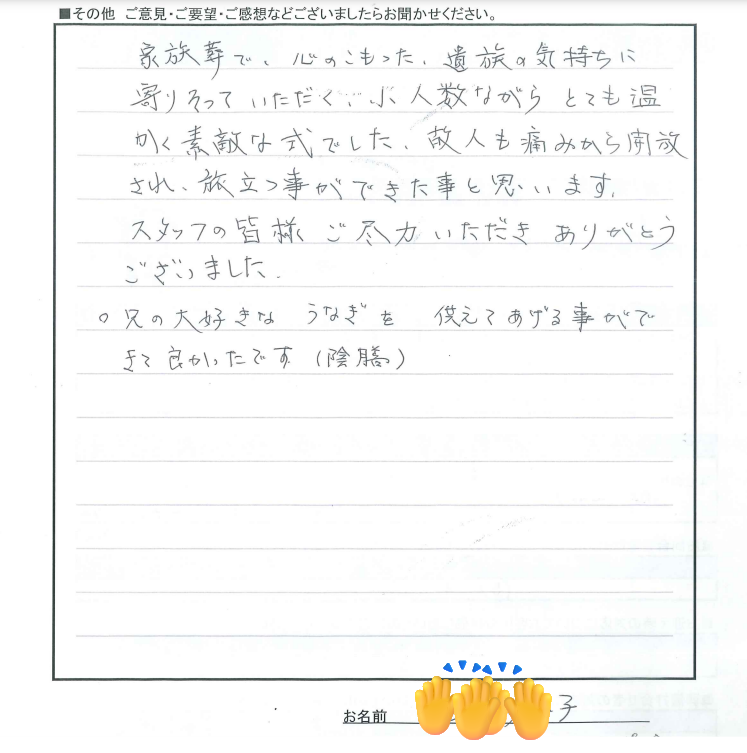 ■その他 ご意見・ご要望・ご感想などございましたらお聞かせください。
家族葬で、心のこもった、遺族の気持ちに
寄りそっていただく、小人数ながら とても温
かく素敵な式でした、故人も痛みから開放
され、旅立つ事ができた事と思います、
スタッフの皆様 ご尽力いただき ありがとう
ございました、
○兄の大好きな うなぎを 供えてあげる事がで
きて良かったです(陰膳)
お名前 子